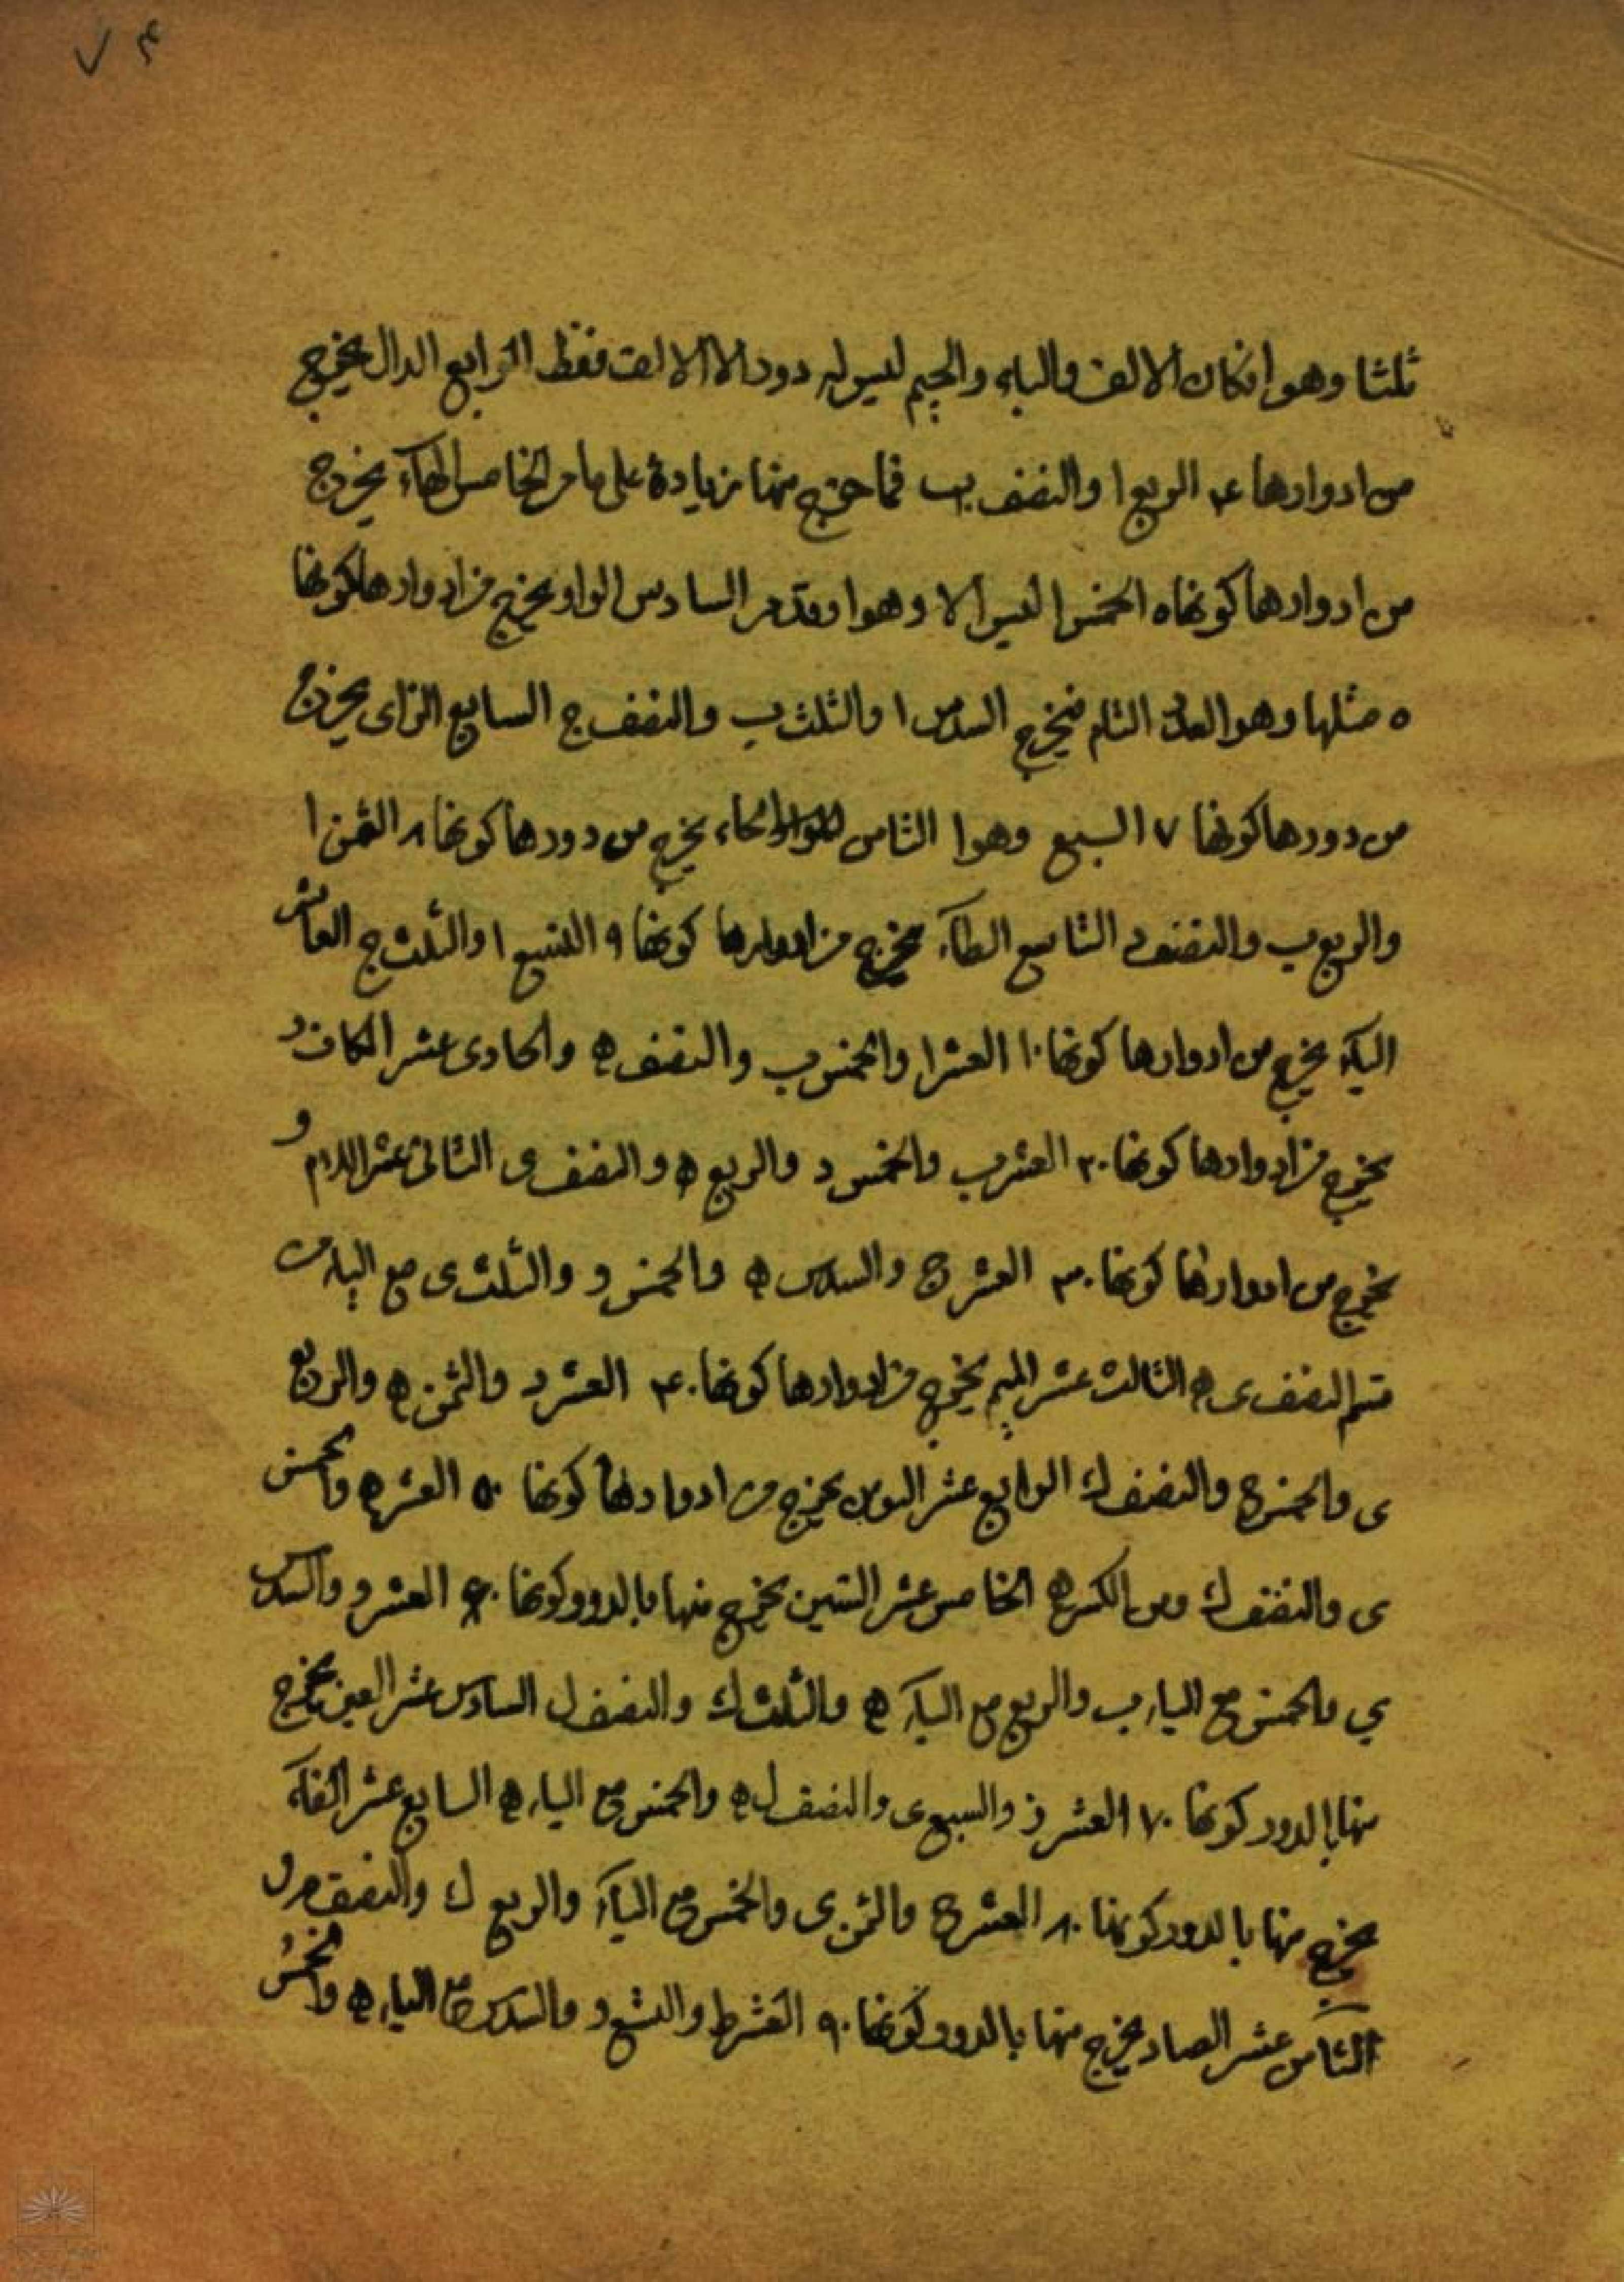 ۷۴
ثلثا وهو ا فكان الالف والباء والجيم ليس له دور الا الالف فقط الرابع الدال يخرج
من ادوارها ۴ الربع ا والنصف ب فما خرج منها زيادة على ما مر الخامس الهآء يخرج
من ادوارها كونها ه الخمس ليس الا وهو ا وقد مر السادس الواو يخرج من ادوارها كونها
ه مثلها وهو العدد التام فيخرج السدس ا والثلث ب والنصف ج السابع الزاى يخرج
من دورها كونها ۷ السبع وهو ا الثامن الحاء يخرج من دورها كونها ۸ الثمن ا
والربع ب والنصف د التاسع الطآء يخرج من ادوارها كونها ۹ التسع ا والثلث ج العاشر
اليآء يخرج من ادوارها كونها ۱۰ العشر ا والخمس ب والنصف ه والحادى عشر الكاف و
يخرج من ادوارها كونها ۲۰ العشر ب والخمس د والربع ه والنصف ى الثانى عشر اللام و
يخرج من ادوارها كونها ۳۰ العشر ج والسدس ه والخمس و والثلث ى مع الياء
تتم النصف ى ه الثالث عشر الميم يخرج من ادوارها كونها ۴۰ العشر د والثمن ه والربع
ى والخمس ح والنصف ك الرابع عشر النون يخرج من ادوارها كونها ۵۰ العشر ه والخمس
ى والنصف ك ومن الكسر ه الخامس عشر السين يخرج منها بالدور كونها ۶۰ العشر و والسدس
ي والخمس مع الياء ب والربع مع اليآء ه والثلث ك والنصف ل السادس عشر العين يخرج
منها بالدور كونها ۷۰ العشر ز والسبع ى والنصف ل ه والخمس مع الياء ه السابع عشر الفآء
يخرج منها بالدور كونها ۸۰ العشر ح والثمن ى والخمس مع اليآء والربع ك والنصف م و
الثامن عشر الصاد يخرج منها بالدور كونها ۹۰ العشر ط والتسع د والسدس مع الياء ه والخمس